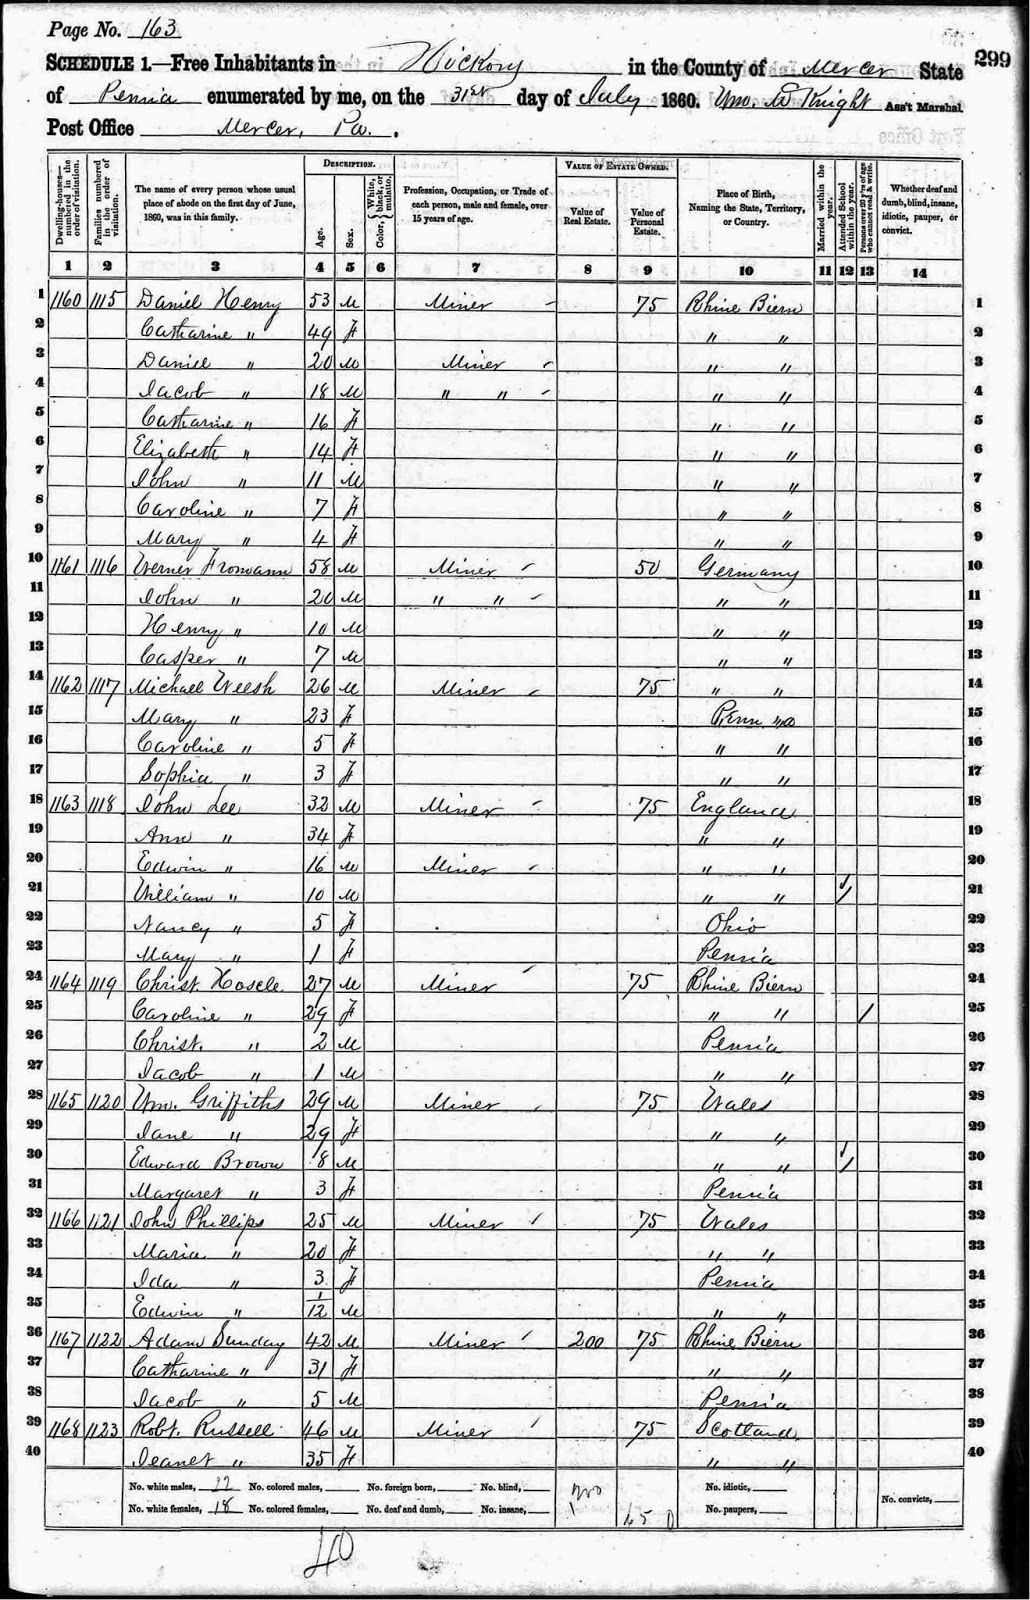 Page No. 163
299
SCHEDULE 1.—Free Inhabitants in Hickory in the County of Mercer State
of Pennia enumerated by me, on the 31st day of July 1860. Wm. McKnight Ass't Marshal.
Post Office Mercer, Pa.
Dwelling-houses—numbered in the order of visitation.
Families numbered in the order of visitation.
The name of every person whose usual place of abode on the first day of June, 1860, was in this family.
DESCRIPTION.
Age.
Sex.
Color, { White, black, or mulatto.
Profession, Occupation, or Trade of each person, male and female, over 15 years of age.
VALUE OF ESTATE OWNED.
Value of Real Estate.
Value of Personal Estate.
Place of Birth, Naming the State, Territory, or Country.
Married within the year.
Attended School within the year.
Persons over 20 y'rs of age who cannot read & write.
Whether deaf and dumb, blind, insane, idiotic, pauper, or convict.
1 2 3 4 5 6 7 8 9 10 11 12 13 14
1 1160 1115 Daniel Henry 53 M Miner 75 Rhine Biern 1
2 Catharine " 49 F " " 2
3 Daniel " 20 M Miner " " 3
4 Jacob " 18 M " " " " 4
5 Catharine " 16 F " " 5
6 Elizabeth " 14 F " " 6
7 John " 11 M " " 7
8 Caroline " 7 F " " 8
9 Mary " 4 F " " 9
10 1161 1116 Werner Fromann 58 M Miner 50 Germany 10
11 John " 20 M " " " " 11
12 Henry " 10 M " " 12
13 Casper " 7 M " " 13
14 1162 1117 Michael Weesh 26 M Miner 75 " " 14
15 Mary " 23 F Penn 15
16 Caroline " 5 F " " 16
17 Sophia " 3 F " " 17
18 1163 1118 John Lee 32 M Miner 75 England 18
19 Ann " 34 F " " 19
20 Edwin " 16 M Miner " " 20
21 William " 10 M " " / 21
22 Nancy " 5 F Ohio 22
23 Mary " 1 F Pennia 23
24 1164 1119 Christ. Hosele 27 M Miner 75 Rhine Biern 24
25 Caroline " 29 F " " / 25
26 Christ. " 2 M Pennia 26
27 Jacob " 1 M " " 27
28 1165 1120 Wm. Griffiths 29 M Miner 75 Wales 28
29 Jane " 29 F " " 29
30 Edward Brown 8 M " " / 30
31 Margaret " 3 F Pennia 31
32 1166 1121 John Phillips 25 M Miner 75 Wales 32
33 Maria " 20 F " " 33
34 Ida " 3 F Pennia 34
35 Edwin " 1/12 M " " 35
36 1167 1122 Adam Sunday 42 M Miner 200 75 Rhine Biern 36
37 Catharine " 31 F " " 37
38 Jacob " 5 M Pennia 38
39 1168 1123 Robt. Russell 46 M Miner 75 Scotland 39
40 Jeanet " 35 F " " 40
No. white males, 22 No. colored males, No. foreign born, No. blind, No. idiotic,
No. white females, 18 No. colored females, No. deaf and dumb, No. insane, 650 No. paupers, No. convicts,
40